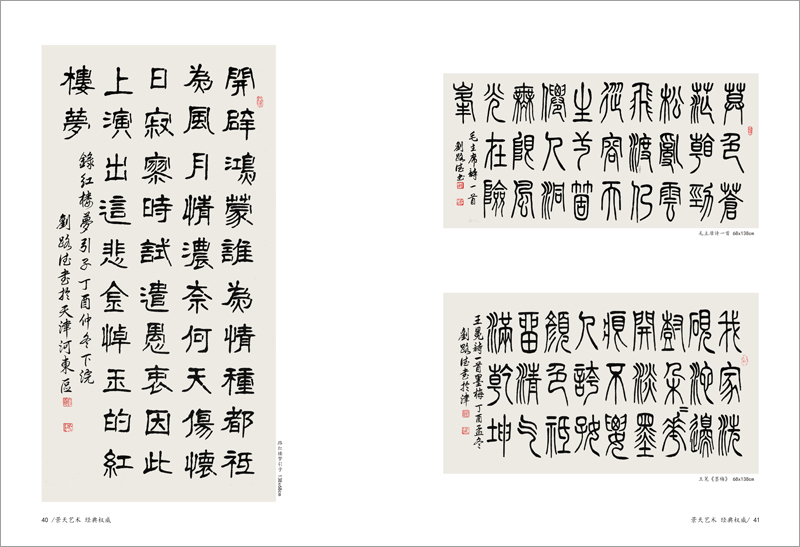 開辟鴻蒙誰為情種都祗
為風月情濃奈何天傷懷
日寂寥時試遣愚衷因此
上演出這悲金悼玉的紅
樓夢
錄红楼夢引子丁酉仲冬下浣
劉路德書於天津河東區
红楼梦引子 138x68cm
40 /景天艺术 经典权威
莫色蒼
茫看勁
松亂雲
飛渡仍
從容天
生一箇
僊人洞
無限風
光在險
峯
毛主席詩一首
劉路德書
毛主席诗一首 68x138cm
我家洗
硯池邊
樹朵=華
開淡墨
痕不要
人誇好
顏色祗
留清气
滿乾坤
王冕詩一首墨梅丁酉孟冬
劉路德書於津
王冕《墨梅》 68x138cm
景天艺术 经典权威/ 41